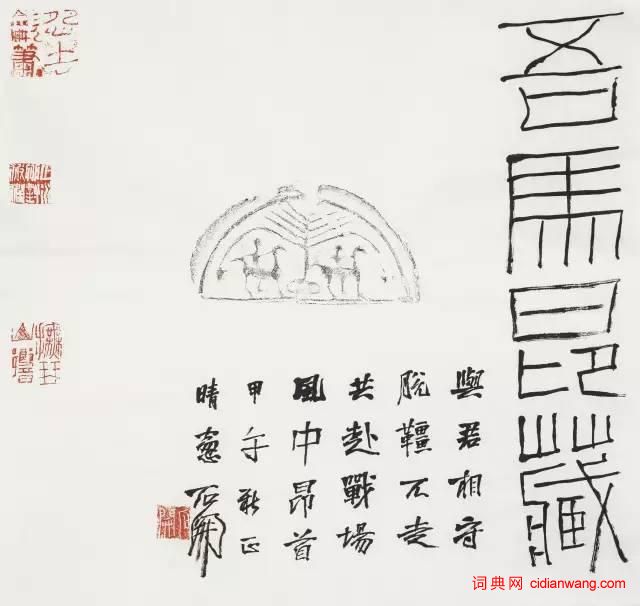 吾馬昂藏
與君相守
脫韁不走
共赴戰場
風中昂首
甲午新正
晴窻 石開
词典网 cidianwang.com